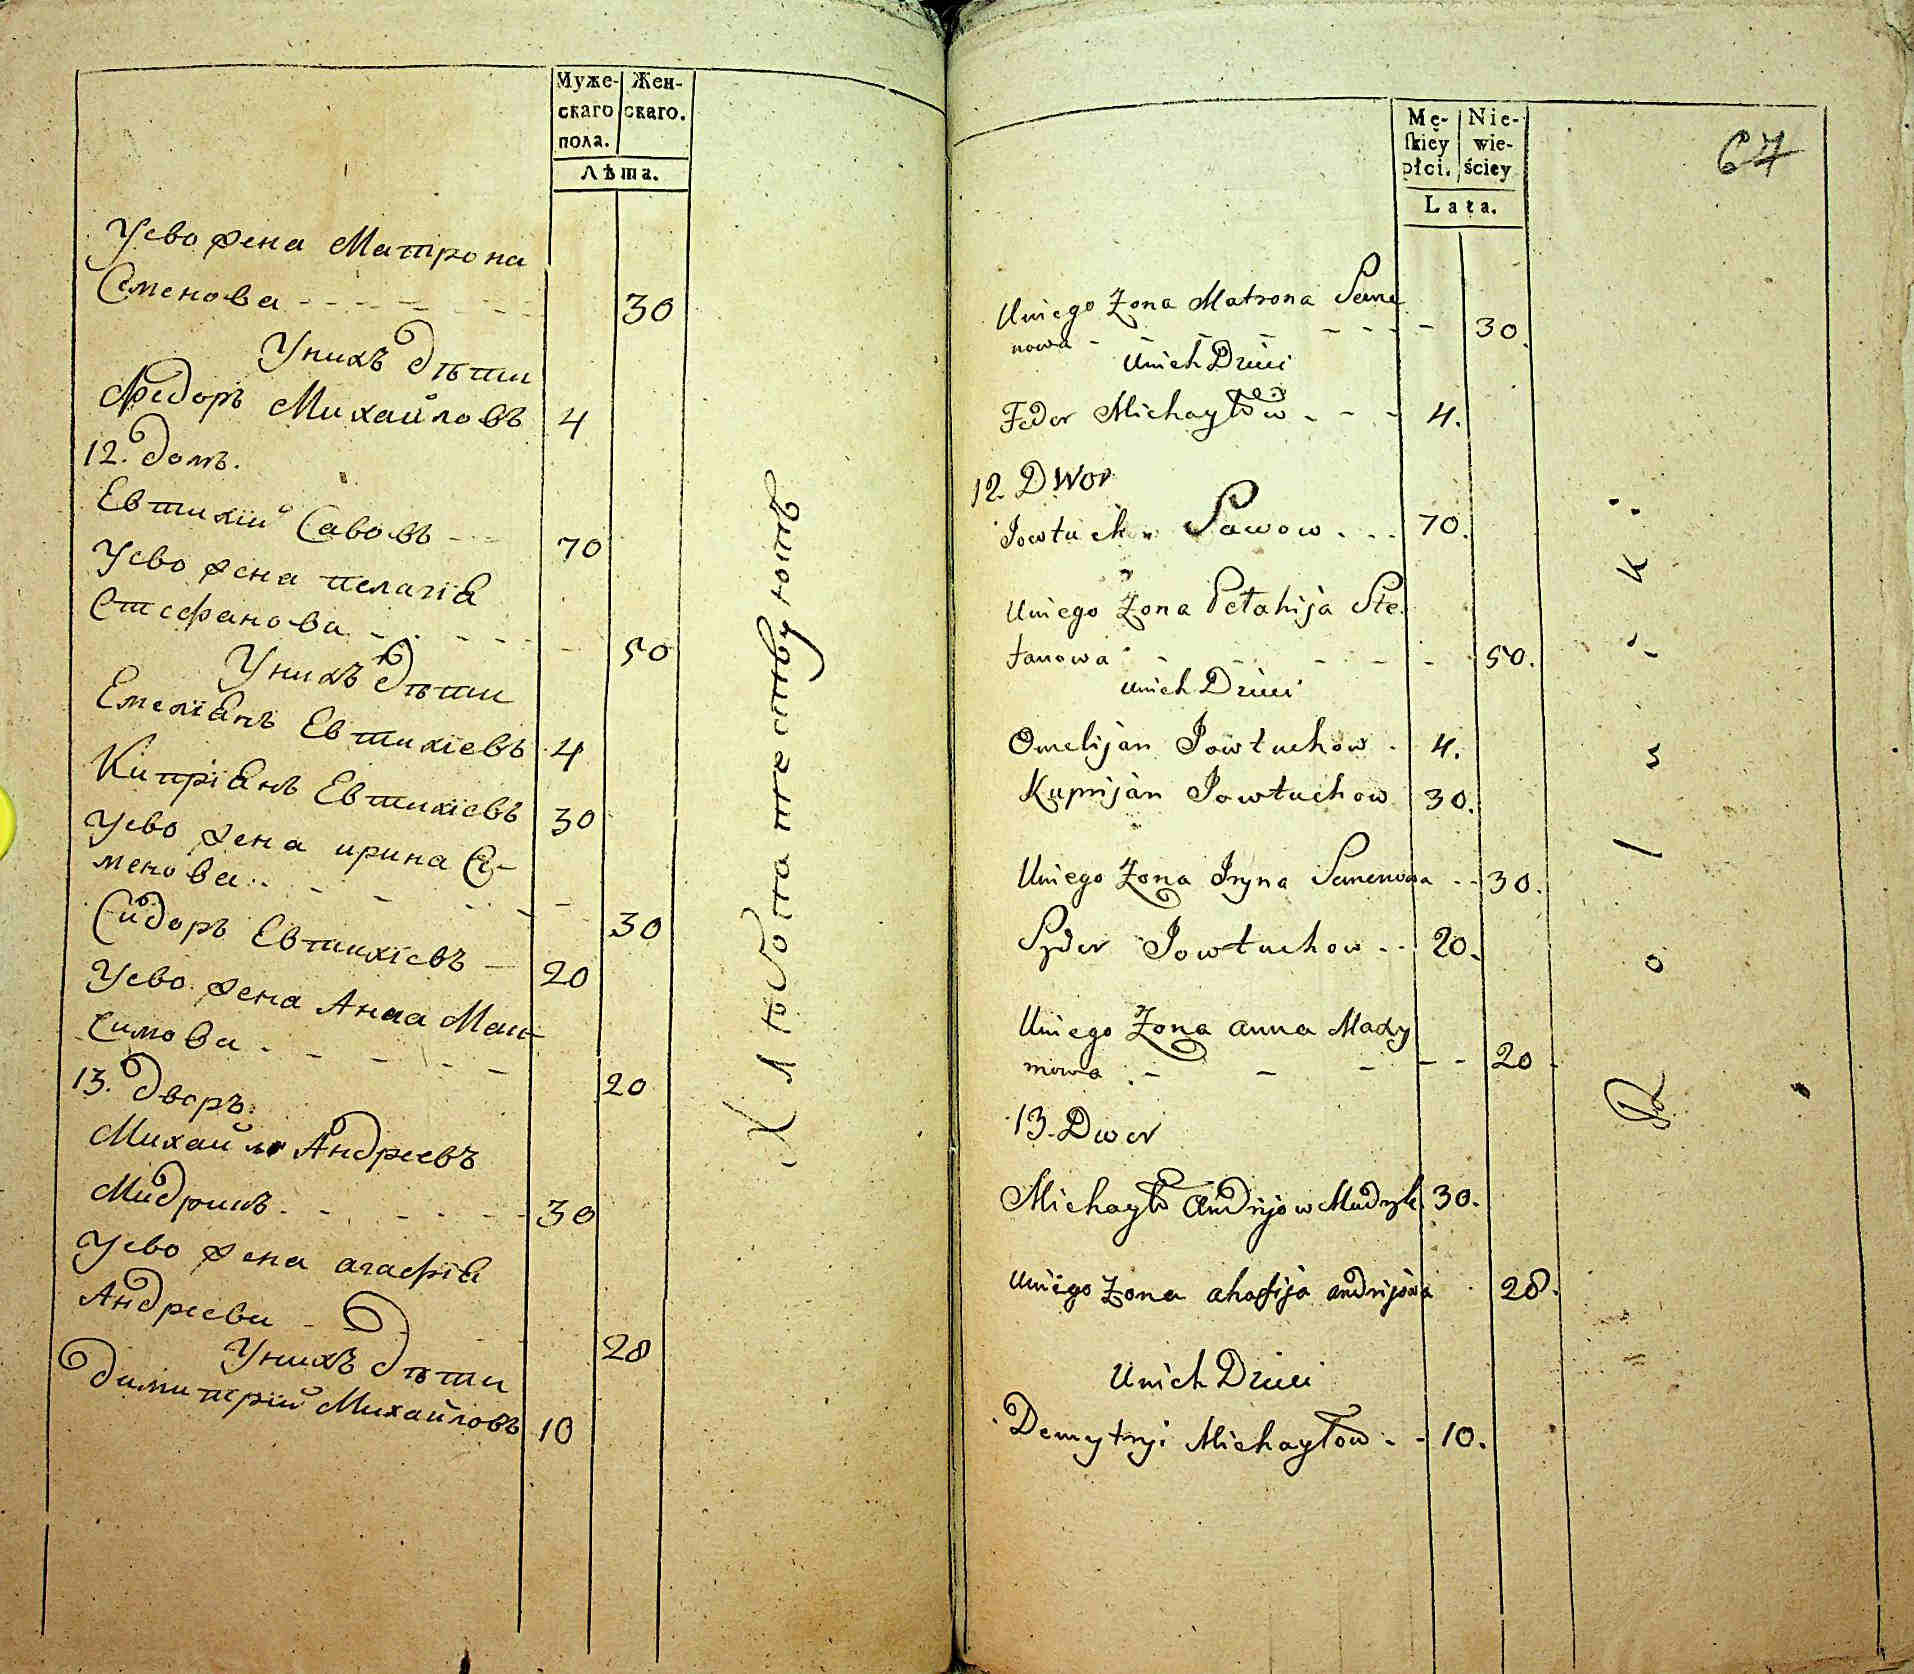 Муже- Жен-
скаго скаго.
пола.
Лѣта.
Уево жена Матрона
Семенова 30
Унихъ дѣти
Федоръ Михайловъ 4
12. домъ.
Евтихiй Савовъ 70
Уево жена пелагiя
Стефанова 50
Унихъ дѣти
Емелiянъ Евтихiевъ 4
Кипрiянъ Евтихiевъ 30
Уево жена ирина Се-
менова 30
Сидоръ Евтихiевъ 20
Уево жена Анна Мак-
симова 20
13. дворъ.
Михайло Андреевъ
Мидрикъ 30
Уево жена агафiя
Андреева 28
Унихъ дѣти
димитрiй Михайловъ 10
Хлѣбопашествуютъ
67
Mę- Nie-
skiey wie-
płci. ściey
Lata.
Uniego Zona Matrona Seme
nowa 30.
Unich Dzieci
Fedor Michayłow 4.
12. Dwor
Jowtuch Sawow 70.
Uniego Zona Pełahija Ste
fanowa 50.
Unich Dzieci
Omelijan Jowtuchow 4.
Kuprijan Jowtuchow 30.
Uniego Zona Iryna Semenowa 30.
Sydor Jowtuchow 20.
Uniego Zona anna Maxy
mowa 20
13. Dwor
Michayło Andrijow Mudryk 30.
Uniego Zona ahafija andrijowa 28.
Unich Dzieci
Demytryi Michayłow 10.
Rolnicki